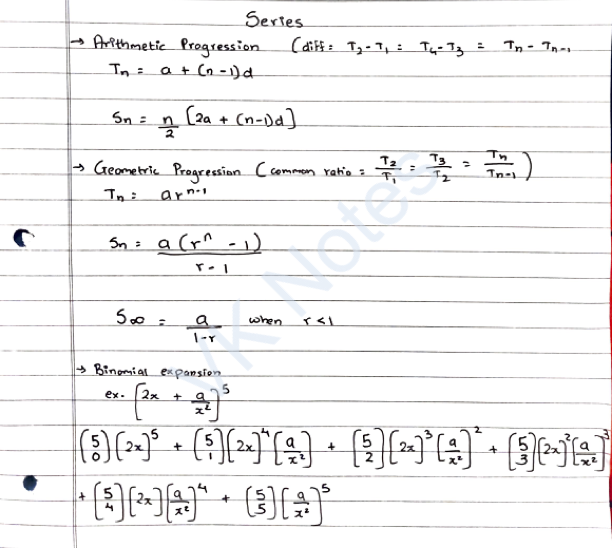 Series
→ Arithmetic Progression (diff = T₂ - T₁ = T₄ - T₃ = Tn - Tn-1
Tn = a + (n-1)d
Sn = n/2 [2a + (n-1)d]
→ Geometric Progression (common ratio = T₂/T₁ = T₃/T₂ = Tn/Tn-1)
Tn = ar^n-1
Sn = a(r^n - 1)/r-1
S∞ = a/1-r when r<1
→ Binomial expansion
ex. [2x + a/x²]⁵
(5 0)[2x]⁵ + (5 1)[2x]⁴[a/x²] + (5 2)[2x]³[a/x²]² + (5 3)[2x]²[a/x²]³
+ (5 4)[2x][a/x²]⁴ + (5 5)[a/x²]⁵
VK Notes